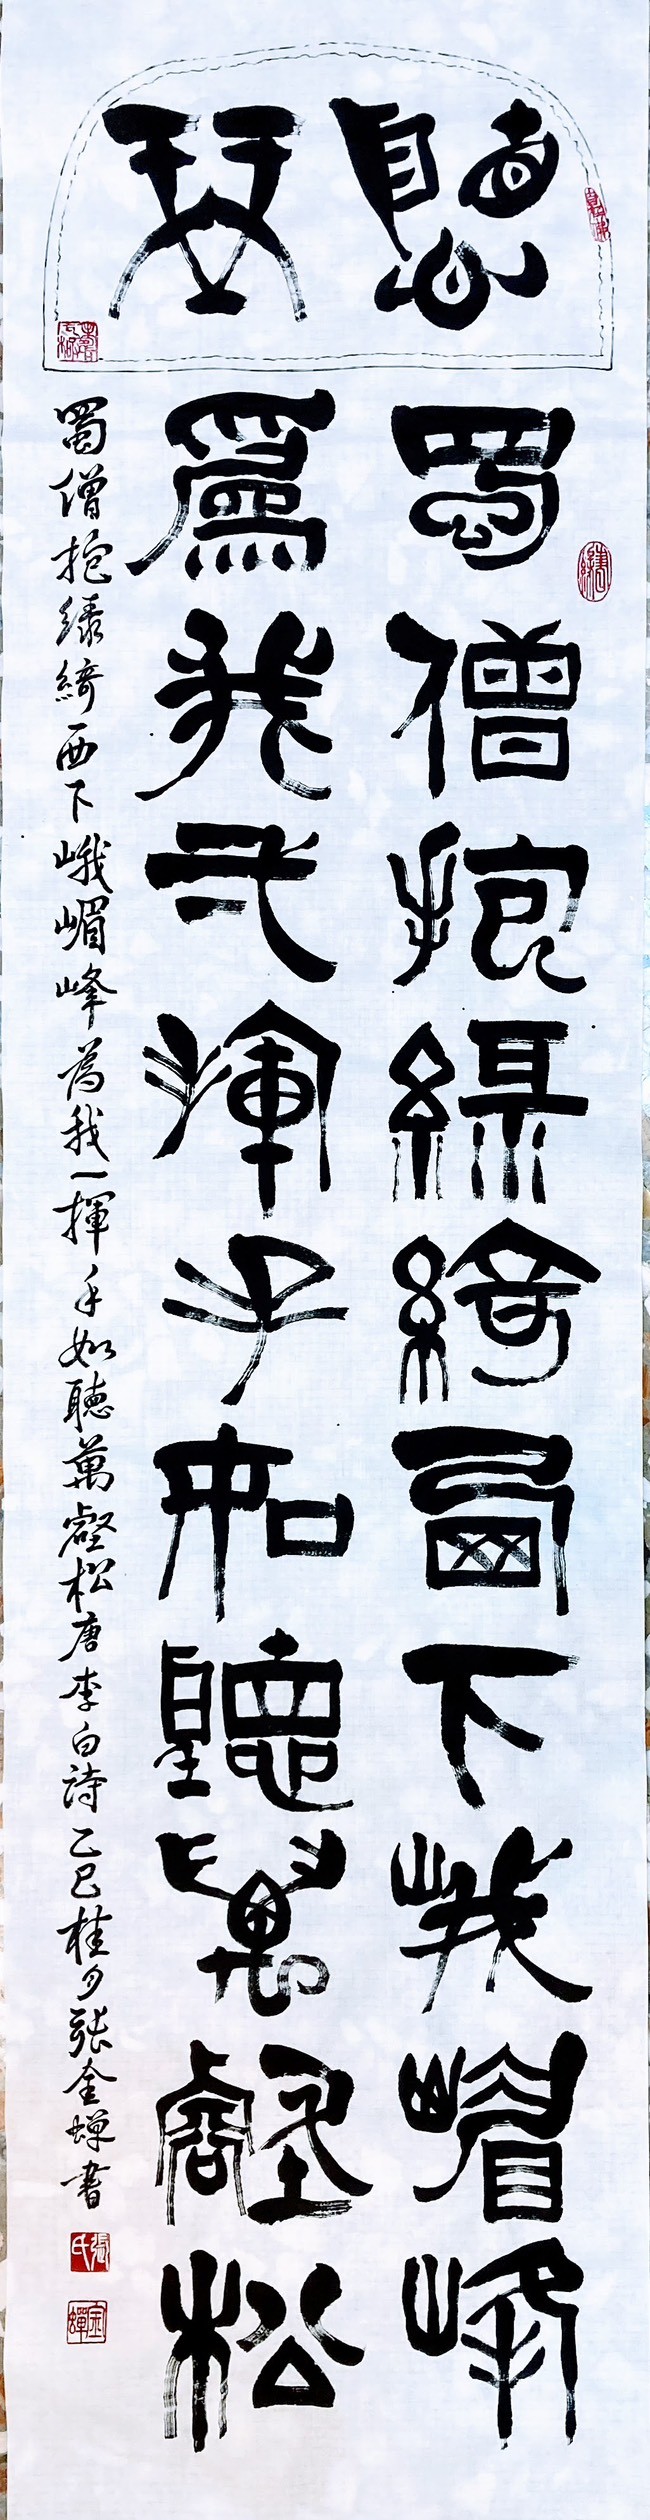 聽琴
蜀僧抱綠綺西下峨嵋峰
為我弌揮手如聽萬壑松
蜀僧抱綠綺西下峨嵋峰為我一揮手如聽萬壑松唐李白詩乙巳桂月張金蟬書
張氏
金蟬